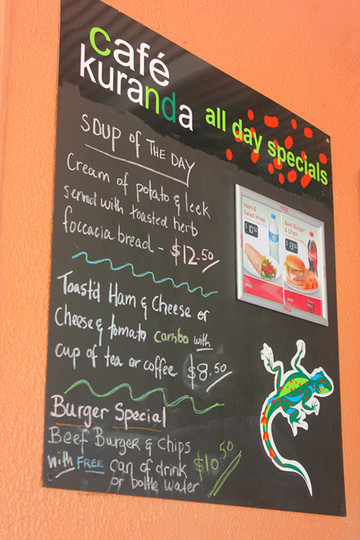 café
kuranda
all day specials
SOUP of THE DAY
Cream of potato & leek
served with toasted herb
foccacia bread - $12.50
Toast'd Ham & Cheese or
Cheese & tomato combo with
cup of tea or coffee $8.50
Burger Special
Beef Burger & Chips
with FREE can of drink
or bottle water $10.50
Ham &
Salad Wrap
Beef Burger
& Chips